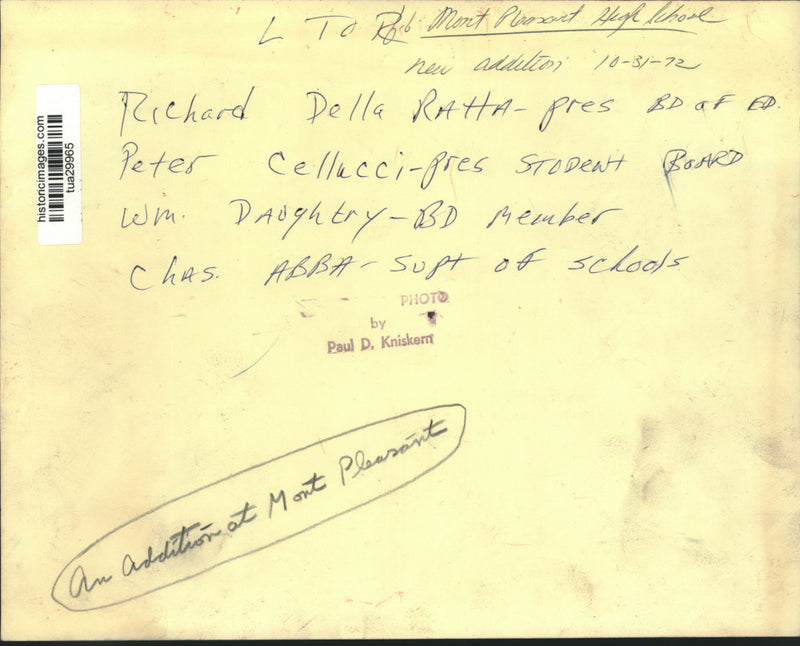 L TO R Mont Pleasant High School
new addition 10-31-72
Richard Della RAttA - pres BD of ED.
Peter Cellucci - pres STUDENT BOARD
Wm. DAughtry - BD Member
Chas. ABBA - Supt of schools
historicimages.com
tua29965
PHOTO
by
Paul D. Kniskern
An Addition at Mont Pleasant